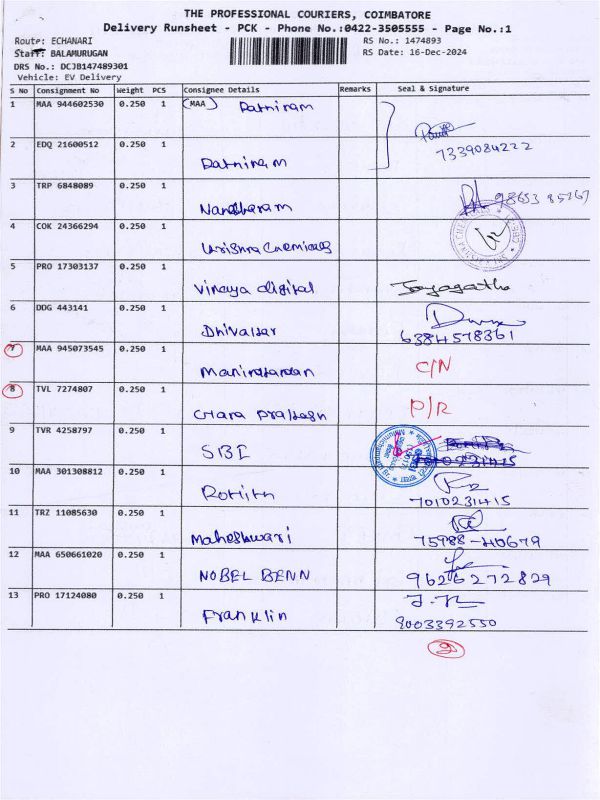 THE PROFESSIONAL COURIERS, COIMBATORE
Delivery Runsheet - PCK - Phone No.:0422-3505555 - Page No.:1
Route: ECHANARI RS No.: 1474893
Staff: BALAMURUGAN RS Date: 16-Dec-2024
DRS No.: DCJB147489301
Vehicle: EV Delivery
S No Consignment No Weight PCS Consignee Details Remarks Seal & Signature
1 MAA 944602530 0.250 1 (MAA)
2 EDQ 21600512 0.250 1 7339084222
3 TRP 6848089 0.250 1 98653 85267
4 COK 24366294 0.250 1 Krishna Chemicals
5 PRO 17303137 0.250 1 Vinaya digital
6 DDG 443141 0.250 1 6384578361
7 MAA 945073545 0.250 1 C/N
8 TVL 7274807 0.250 1 P/R
9 TVR 4258797 0.250 1 SBI
10 MAA 301308812 0.250 1 Rohith 7010231415
11 TRZ 11085630 0.250 1 Maheshwari 75988-40679
12 MAA 650661020 0.250 1 NOBEL BENN 9626272829
13 PRO 17124080 0.250 1 Franklin 9003392550